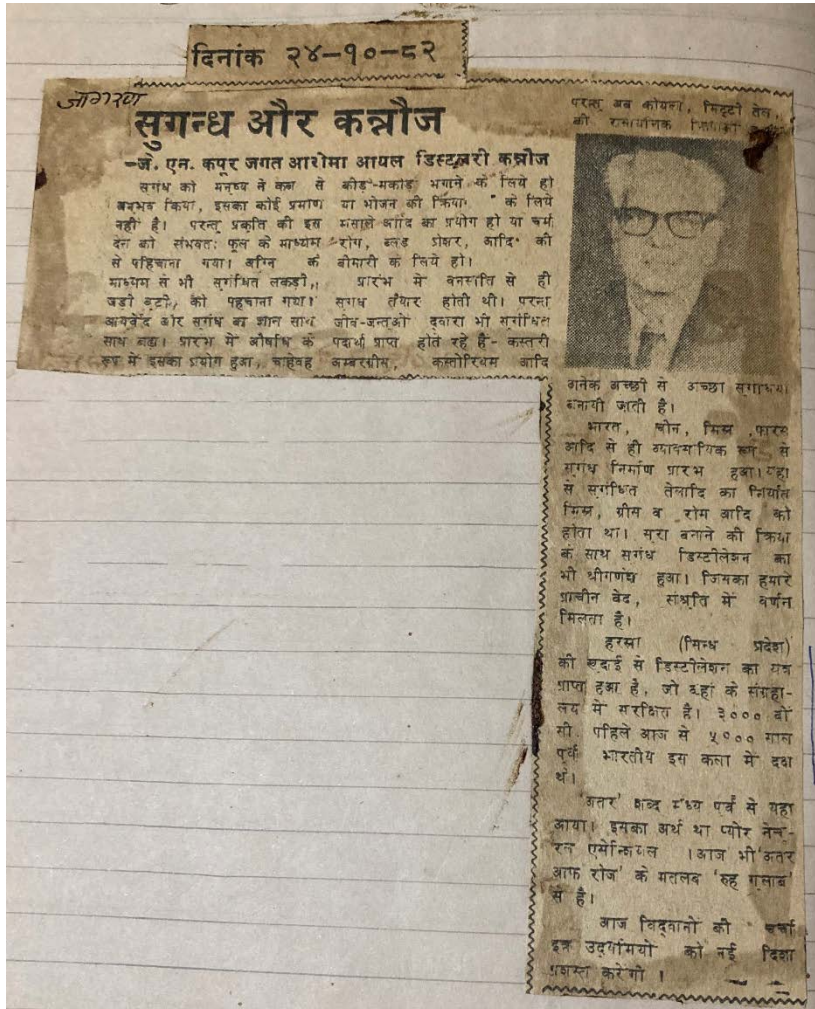 दिनांक २४-१०-८२
जागरण
सुगन्ध और कन्नौज
-जे. एन. कपूर जगत आरोमा आयल डिस्टलरी कन्नौज
सुगंध को मनुष्य ने कब से
अनुभव किया, इसका कोई प्रमाण
नहीं है। परन्तु प्रकृति की इस
देन को संभवतः फूल के माध्यम
से पहिचाना गया। अग्नि के
माध्यम से भी सुगंधित लकड़ी,
जड़ी बूटी, को पहचाना गया।
आयुर्वेद और सुगंध का ज्ञान साथ
साथ बढ़ा। प्रारंभ में औषधि के
रूप में इसका प्रयोग हुआ, चाहेवह
कीड़े-मकोड़े भगाने के लिये हो
या भोजन की क्रिया के लिये
मसाले आदि का प्रयोग हो या चर्म
रोग, ब्लड प्रेशर, आदि की
बीमारी के लिये हो।
प्रारंभ में वनस्पति से ही
सुगंध तैयार होती थी। परन्तु
जीव-जन्तुओं द्वारा भी सुगंधित
पदार्थ प्राप्त होते रहे है- कस्तूरी
अम्बरग्रीस, कस्तोरियम आदि
परन्तु अब कोयला, मिट्टी तेल,
की रासायनिक
अनेक अच्छी से अच्छी सुगंधियां
बनायी जाती है।
भारत, चीन, मिस्र ,फारस
आदि से ही व्यावसायिक रूप से
सुगंध निर्माण प्रारंभ हुआ।यहां
से सुगंधित तेलादि का निर्यात
मिस्र, ग्रीस व रोम आदि को
होता था। सुरा बनाने की क्रिया
के साथ सुगंध डिस्टीलेशन का
भी श्रीगणेश हुआ। जिसका हमारे
प्राचीन वेद, संश्रुति में वर्णन
मिलता है।
हरप्पा (सिन्ध प्रदेश)
की खुदाई से डिस्टीलेशन का यंत्र
प्राप्त हुआ है, जो वहां के संग्रहा-
लय में सुरक्षित है। ३००० बी
सी. पहिले आज से ५००० साल
पूर्व भारतीय इस कला में दक्ष
थे।
'अतर' शब्द मध्य पूर्व से यहां
आया। इसका अर्थ था प्योर नेचु-
रल एसेन्शियल ।आज भी'अतर
आफ रोज' के मतलब 'रुह गुलाब'
से है।
आज विद्वानों की चर्चा
इत्र उद्यमियों को नई दिशा
प्रशस्त करेगी ।